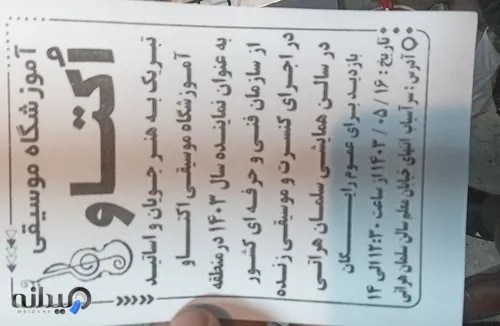 آموزشگاه موسیقی
اُکتاو
تبریک به هنرجویان و اساتید
آموزشگاه موسیقی اکتاو
به عنوان نماینده سال ۱۴۰۳ در منطقه
از سازمان فنی و حرفه ای کشور
در اجرای کنسرت و موسیقی زنده
در سالن همایشی سلمان هراتی
بازدید برای عموم رایگان
تاریخ : ۱۶ / ۰۵ / ۱۴۰۳ از ساعت ۱۲:۳۰ الی ۱۴
آدرس : سرآسیاب انتهای خیابان معلم سالن سلمان هراتی
میدانه
MEIDANE